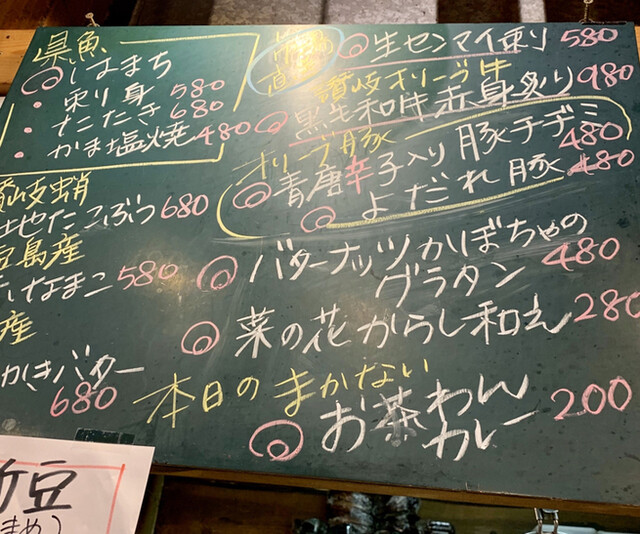 県魚
はまち
刺り身 580
たたき 680
かま塩焼 480
讃岐蛸
地だこぶつ 680
豆島産
なまこ 580
産
かきバター
680
直
生センマイ刺り 580
讃岐オリーブ牛
黒毛和牛赤身炙り 980
オリーブ豚
青唐辛子入り豚チヂミ
480
よだれ豚 480
バターナッツかぼちゃの
グラタン 480
菜の花からし和え 280
本日のまかない
お茶わん
カレー 200
豆
まめ)